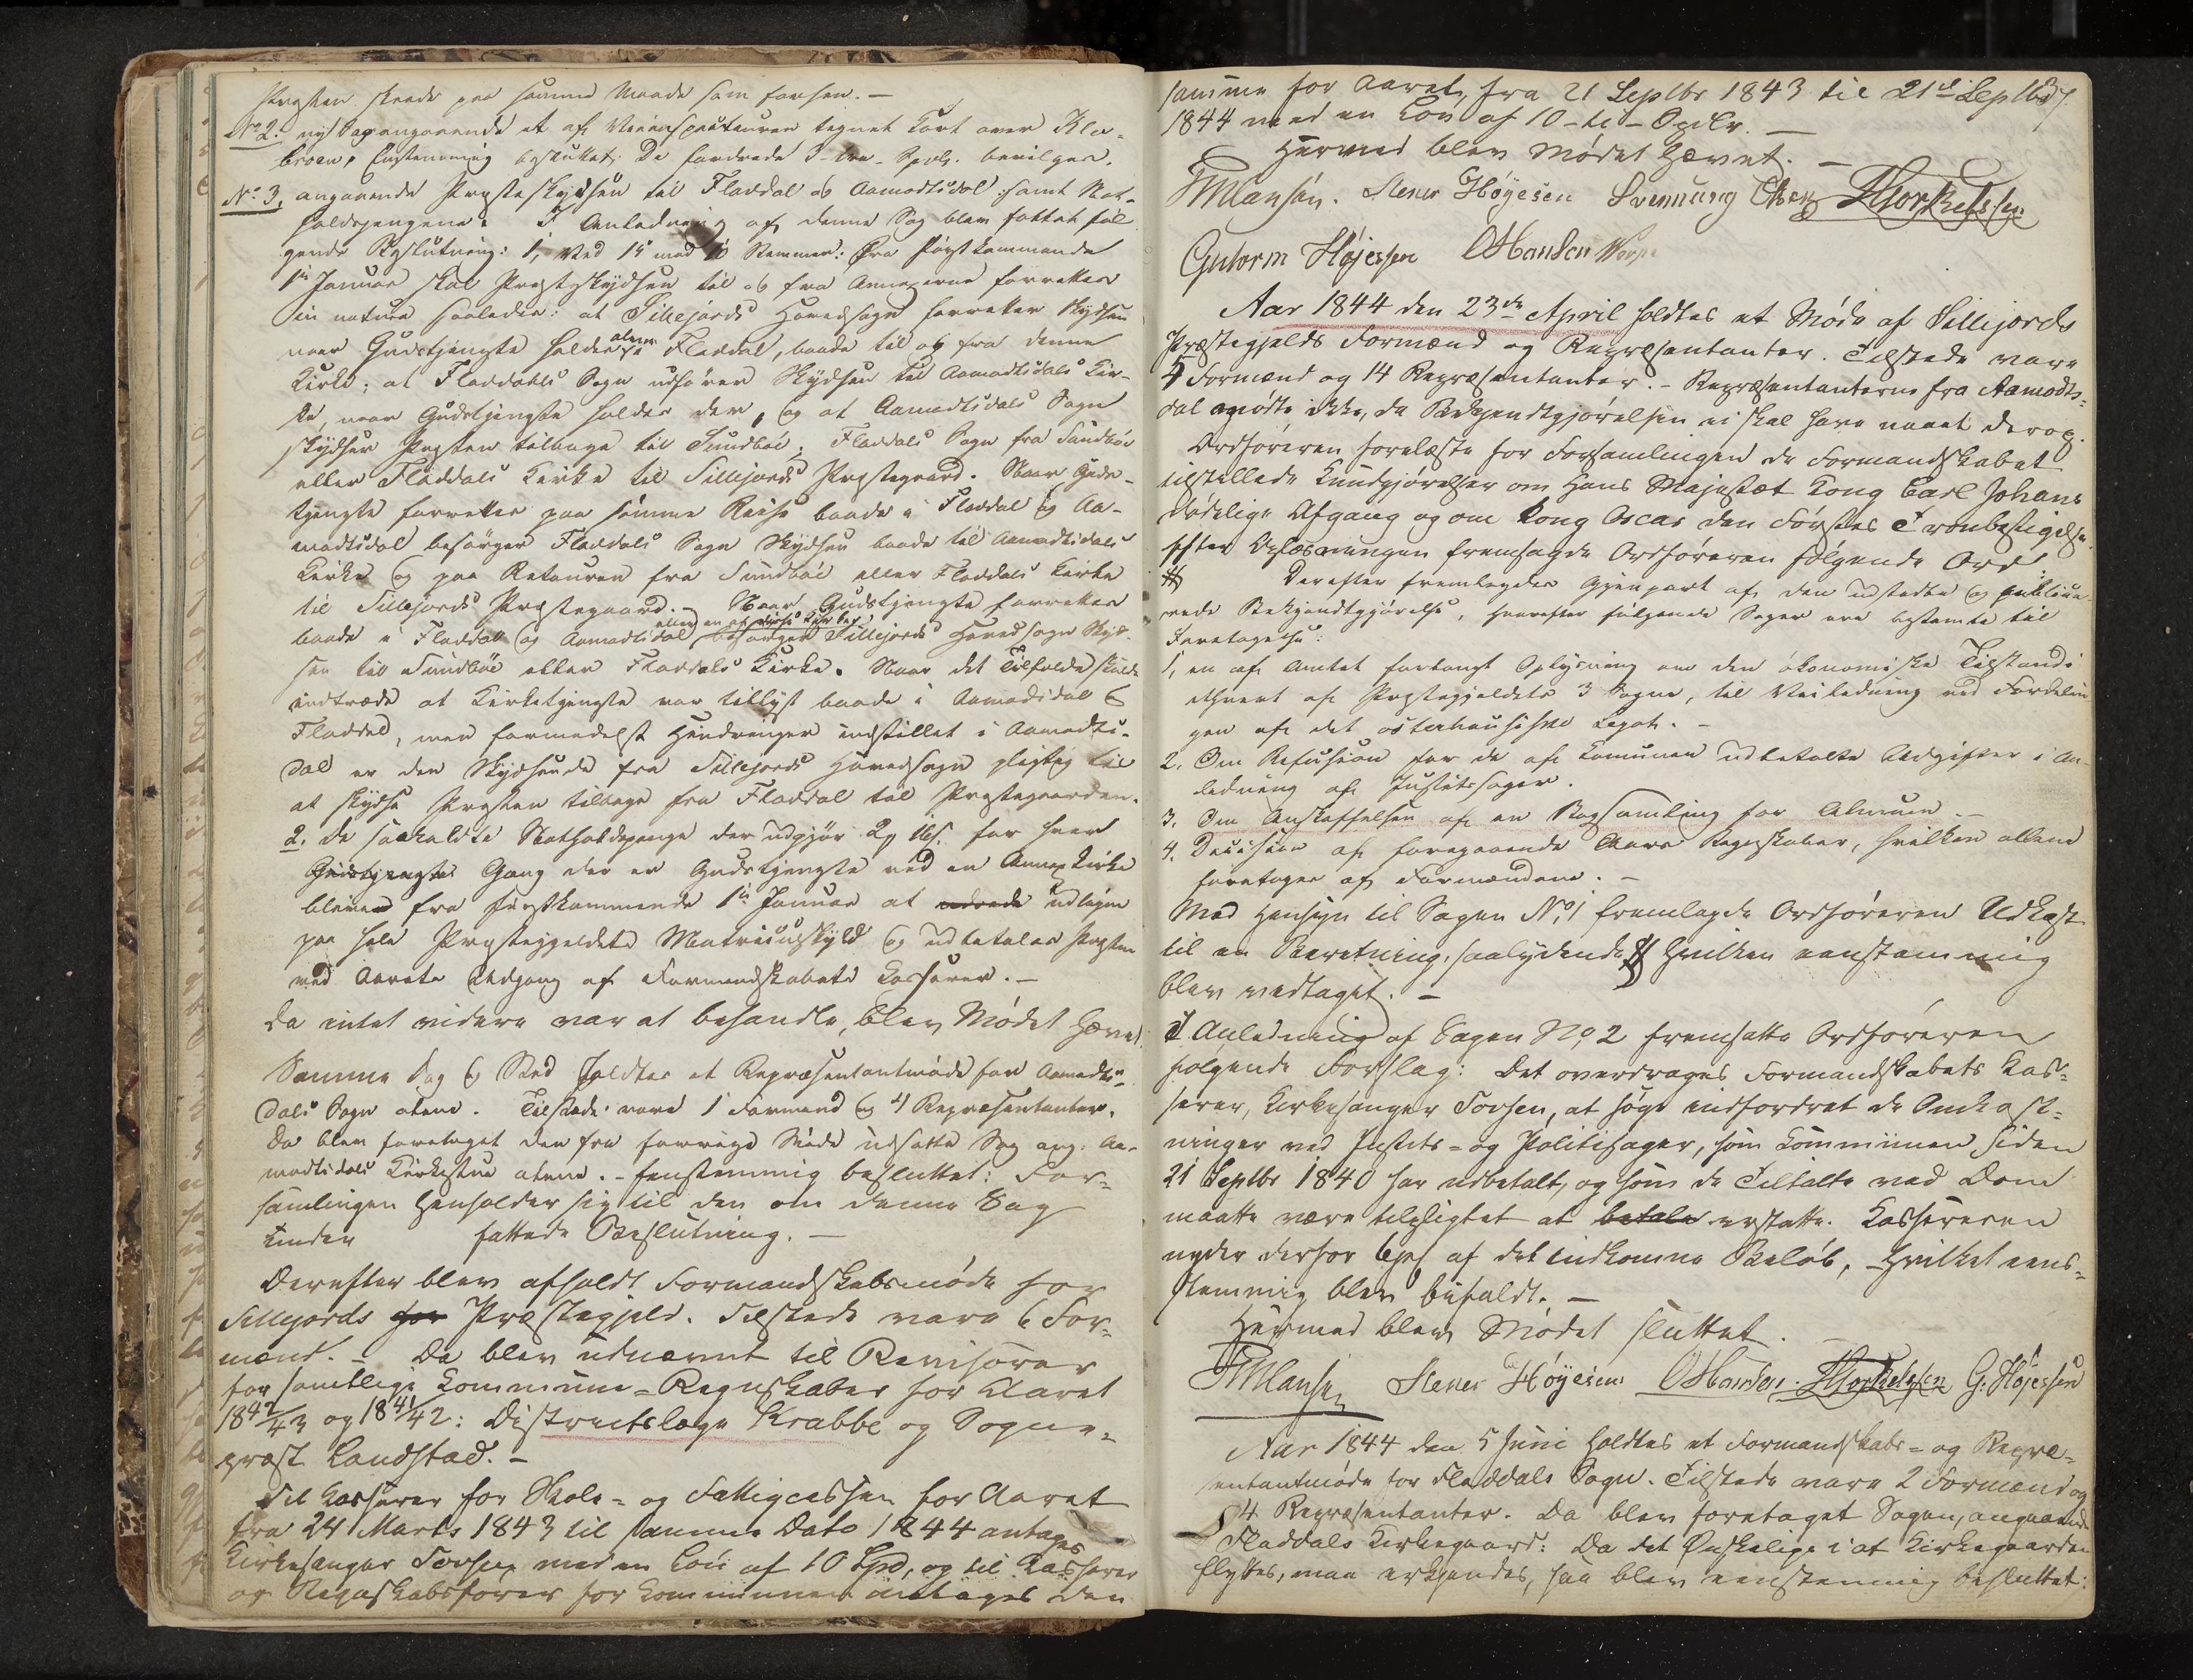 Præsten skeede paa samme Maade som forhen. —
No 2. angaaende et af Veiinspecteuren tegnet Kort over Kle-
broen, Eenstemmig besluttet: De fordrede 3 - tre - Spdlr. bevilges.
No 3, angaaende Præsteskydsen til Fladdal og Aamodtsdal samt Nat-
holdspengene. I Anledning af denne Sag blev fattet føl-
gende Beslutning: 1, Ved 15 mod Stemmer: Fra førstkommende
1ste Januar skal Præsteskydsen til og fra Annexerne forrettes
in natura saaledes: at Sillejords Hovedsogn forretter Skydsen
naar Gudstjeneste holdes i Fladdal alene, baade til og fra denne
Kirke; at Fladdals Sogn udfører Skydsen til Aamodtsdals Kir-
ke, naar Gudstjeneste holdes der, og at Aamodtsdals Sogn
skydser Præsten tilbage til Sundbøe, Fladdals Sogn fra Sundbøe
eller Fladdals Kirke til Sillejords Præstegaard. Naar Guds-
tjeneste forrettes paa samme Reise baade i Fladdal og Aa-
modtsdal besørger Fladdals Sogn Skydsen baade til Aamodtsdals
Kirke og paa Retouren fra Sundbøe eller Fladdals Kirke
til Sillejords Præstegaard. — Naar Gudstjeneste forrettes
baade i Fladdal og Aamodtsdal eller en af disse besørger Sillejords Hovedsogn Skyd-
sen til Sundbøe eller Fladdals Kirke. Naar det Tilfælde skulde
indtræde at Kirketjeneste var tillyst baade i Aamodtsdal &
Fladdal, men formedelst Hindringer indstillet i Aamodts-
dal er den Skydsende fra Sillejords Hovedsogn pligtig til
at skydse Præsten tilbage fra Fladdal til Præstegaarden.
2. De saakaldte Natholdspenge der udgjør 2 for hver
Gudstjeneste Gang der er Gudstjeneste ved en Annex Kirke
bliver fra førstkommende 1ste Januar at udrede udlignes
paa hele Præstegjeldets Matriculskyld og udbetales Præsten
ved Aarets Udgang af Formandskabets Casserer. —
Da intet videre var at behandle, blev Mødet hævet.
Samme Dag og Sted holdtes et Repræsentantmøde for Aamodts-
dals Sogn alene. Tilstede vare 1 Formand og 4 Repræsentanter.
Da blev foretaget den fra forrige Møde udsatte Sag ang. Aa-
modtsdals Kirkestue alene. - Eenstemmig besluttet: For-
samlingen henholder sig til den om denne Sag
tinden fattede Beslutning. —
Derefter blev afholdt Formandskabsmøde for
Sillejords for Præstegjeld. Tilstede vare 6 For-
mænd. — Da blev udnævnt til Revisorer
for samtlige Kommune-Regnskaber for Aaret
1842/43 og 1841/42: Distructslæge Krabbe og Sogne-
præst Landstad. —
Til Kasserer for Skole- og Fattigcassen for Aaret
fra 24 Marts 1843 til samme Dato 1844 antages
Kirkesanger Tovsen med en Løn af 10 Spd, og til Kasserer
og Regnskabsfører for Kommunen antages den
samme for Aaret, fra 21 Septbr 1843 til 21de Septbr
1844 med en Løn af 10 - ti - Spdlr. —
Hermed blev Mødet hævet. —
Hansen. Stener Høyesen Svennung Olsen HTorkelssen
Gutorm Høyessen OHansen
Aar 1844 den 23de April holdtes et Møde af Sillejords
Præstegjelds Formænd og Repræsentanter. Tilstede vare
5 Formænd og 14 Repræsentanter. - Repræsentanterne fra Aamodts-
dal mødte ikke, da Bekjendtgjørelsen ei skal have naaet derop.
Ordføreren forelæste for Forsamlingen de Formandskabet
tilstillede Kundgjørelser om Hans Majestæt Kong Carl Johans
dødelige Afgang og om Kong Oscar den Førstes Tronbestigelse.
Efter Oplæsningen fremsagde Ordføreren følgende Ord
# Derefter fremlagdes Gjenpart af den udstedte og publice-
rede Bekjendtgjørelse, hvorefter følgende Sager ere bestemte til
Foretagelse:
1, en af Amtet forlangt Oplysning om den økonomiske Tilstand i
ethvert af Præstegjeldets 3 Sogne, til Veiledning ved Fordelin-
gen af det osterhausiske Legat. —
2. Om Refusion for de af Communen udbetalte Udgifter i An-
ledning af Justitssager.
3. Om Anskaffelsen af en Bogsamling for Almuen —
4. Decision af foregaaende Aars Regnskaber, hvilken allene
foretages af Formændene. —
Med Hensyn til Sagen No 1 fremlagde Ordføreren Udkast
til en Beretning, saalydende # Hvilken eenstemmig
blev vedtaget. —
I Anledning af Sagen No 2 fremsatte Ordføreren
følgende Forslag: Det overdrages Formandskabets Kas-
serer, Kirkesanger Tovsen, at søge indfordret de Omkost-
ninger ved Justits- og Politisager, som Kommunen siden
21 Septbr 1840 har udbetalt, og som de Tiltalte ved Dom
maatte være tilpligtet at betale erstatte. Kassereren
nyder derfor 6 pct af det indkomne Beløb, - Hvilket eens-
stemmig blev bifaldt. —
Hermed blev Mødet sluttet. —
Hansen Stener Høyesen OHansen HTorkelssen G. Høyessen
Aar 1844 den 5 Juni holdtes et Formandskabs- og Repræ-
sentantmøde for Fladdals Sogn. Tilstede vare 2 Formænd og
4 Repræsentanter. Da blev foretaget Sagen, angaaende
Fladdals Kirkegaard: Da det Ønskelige i at Kirkegaarden
flyttes, maa erkjendes, saa blev eenstemmig besluttet: